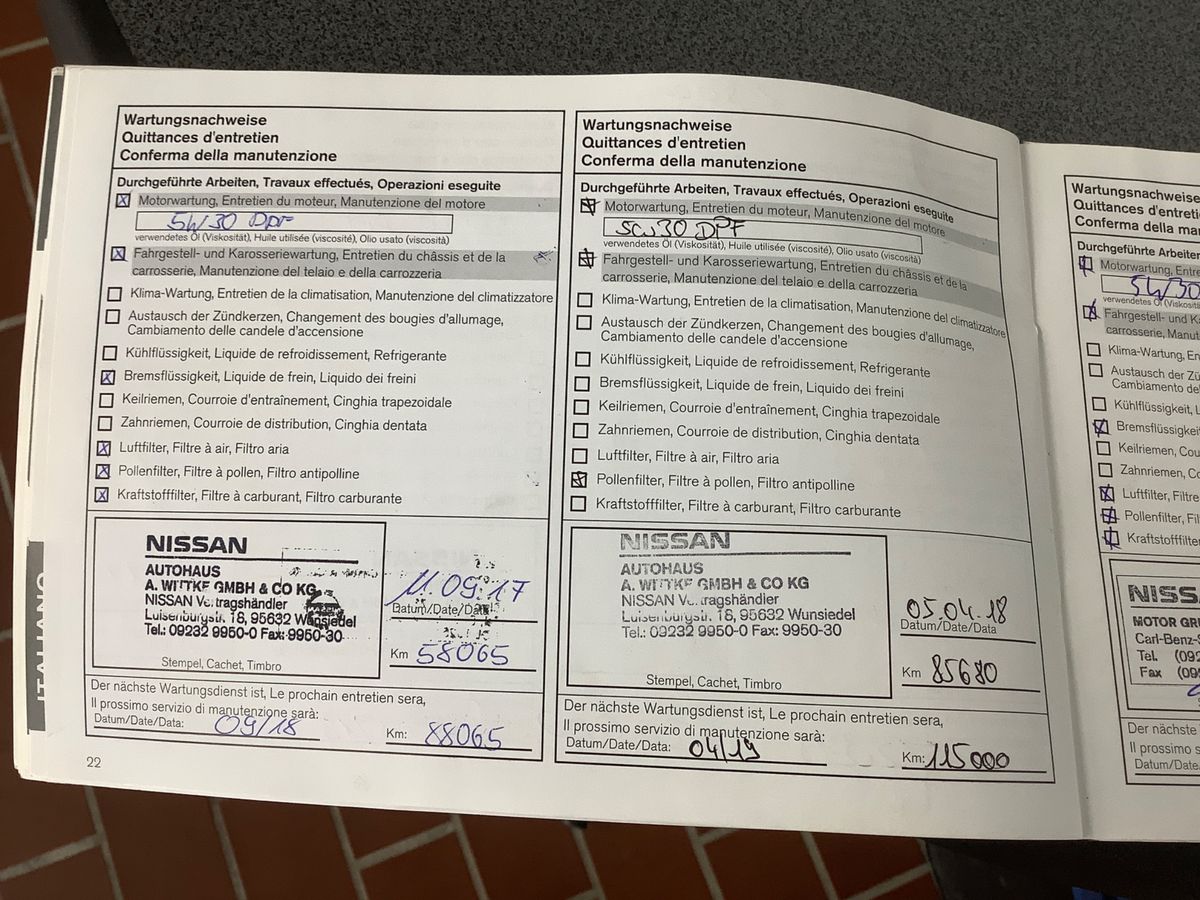 Wartungsnachweise
Quittances d'entretien
Conferma della manutenzione
Durchgeführte Arbeiten, Travaux effectués, Operazioni eseguite
Motorwartung, Entretien du moteur, Manutenzione del motore
5W30 DPF
verwendetes Öl (Viskosität), Huile utilisée (viscosité), Olio usato (viscosità)
Fahrgestell- und Karosseriewartung, Entretien du châssis et de la
carrosserie, Manutenzione del telaio e della carrozzeria
Klima-Wartung, Entretien de la climatisation, Manutenzione del climatizzatore
Austausch der Zündkerzen, Changement des bougies d'allumage,
Cambiamento delle candele d'accensione
Kühlflüssigkeit, Liquide de refroidissement, Refrigerante
Bremsflüssigkeit, Liquide de frein, Liquido dei freini
Keilriemen, Courroie d'entraînement, Cinghia trapezoidale
Zahnriemen, Courroie de distribution, Cinghia dentata
Luftfilter, Filtre à air, Filtro aria
Pollenfilter, Filtre à pollen, Filtro antipolline
Kraftstofffilter, Filtre à carburant, Filtro carburante
NISSAN
AUTOHAUS
A. WITTKE GMBH & CO KG
NISSAN Vertragshändler
Luisenburgstr. 18, 95632 Wunsiedel
Tel.: 09232 9950-0 Fax: 9950-30
Stempel, Cachet, Timbro
11.09.17
Datum/Date/Data
Km 58065
Der nächste Wartungsdienst ist, Le prochain entretien sera,
Il prossimo servizio di manutenzione sarà:
Datum/Date/Data: 09/18 Km: 88065
22
ITALIANO
Wartungsnachweise
Quittances d'entretien
Conferma della manutenzione
Durchgeführte Arbeiten, Travaux effectués, Operazioni eseguite
Motorwartung, Entretien du moteur, Manutenzione del motore
5W30 DPF
verwendetes Öl (Viskosität), Huile utilisée (viscosité), Olio usato (viscosità)
Fahrgestell- und Karosseriewartung, Entretien du châssis et de la
carrosserie, Manutenzione del telaio e della carrozzeria
Klima-Wartung, Entretien de la climatisation, Manutenzione del climatizzatore
Austausch der Zündkerzen, Changement des bougies d'allumage,
Cambiamento delle candele d'accensione
Kühlflüssigkeit, Liquide de refroidissement, Refrigerante
Bremsflüssigkeit, Liquide de frein, Liquido dei freini
Keilriemen, Courroie d'entraînement, Cinghia trapezoidale
Zahnriemen, Courroie de distribution, Cinghia dentata
Luftfilter, Filtre à air, Filtro aria
Pollenfilter, Filtre à pollen, Filtro antipolline
Kraftstofffilter, Filtre à carburant, Filtro carburante
NISSAN
AUTOHAUS
A. WITTKE GMBH & CO KG
NISSAN Vertragshändler
Luisenburgstr. 18, 95632 Wunsiedel
Tel.: 09232 9950-0 Fax: 9950-30
Stempel, Cachet, Timbro
05.04.18
Datum/Date/Data
Km 85680
Der nächste Wartungsdienst ist, Le prochain entretien sera,
Il prossimo servizio di manutenzione sarà:
Datum/Date/Data: 04/19 Km: 115000
Wartungsnachweis
Quittances d'entre
Conferma della ma
Durchgeführte Arbeiten
Motorwartung, Entre
5W30
verwendetes Öl (Viskosi
Fahrgestell- und K
carrosserie, Manut
Klima-Wartung, En
Austausch der Zü
Cambiamento del
Kühlflüssigkeit, L
Bremsflüssigkeit
Keilriemen, Cou
Zahnriemen, Co
Luftfilter, Filtre
Pollenfilter, Fil
Kraftstofffilter
NISS
MOTOR GR
Carl-Benz-S
Tel. (092
Fax (09
Der nächste
Il prossimo s
Datum/Data/